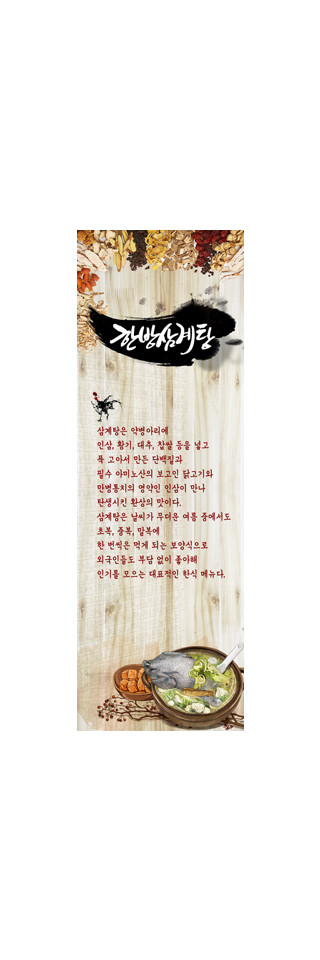 한방삼계탕
삼계탕은 약병아리에
인삼, 황기, 대추, 찹쌀 등을 넣고
푹 고아서 만든 단백질과
필수 아미노산의 보고인 닭고기와
만병통치의 영약인 인삼이 만나
탄생시킨 환상의 맛이다.
삼계탕은 날씨가 무더운 여름 중에서도
초복, 중복, 말복에
한 번씩은 먹게 되는 보양식으로
외국인들도 부담 없이 좋아해
인기를 모으는 대표적인 한식 메뉴다.